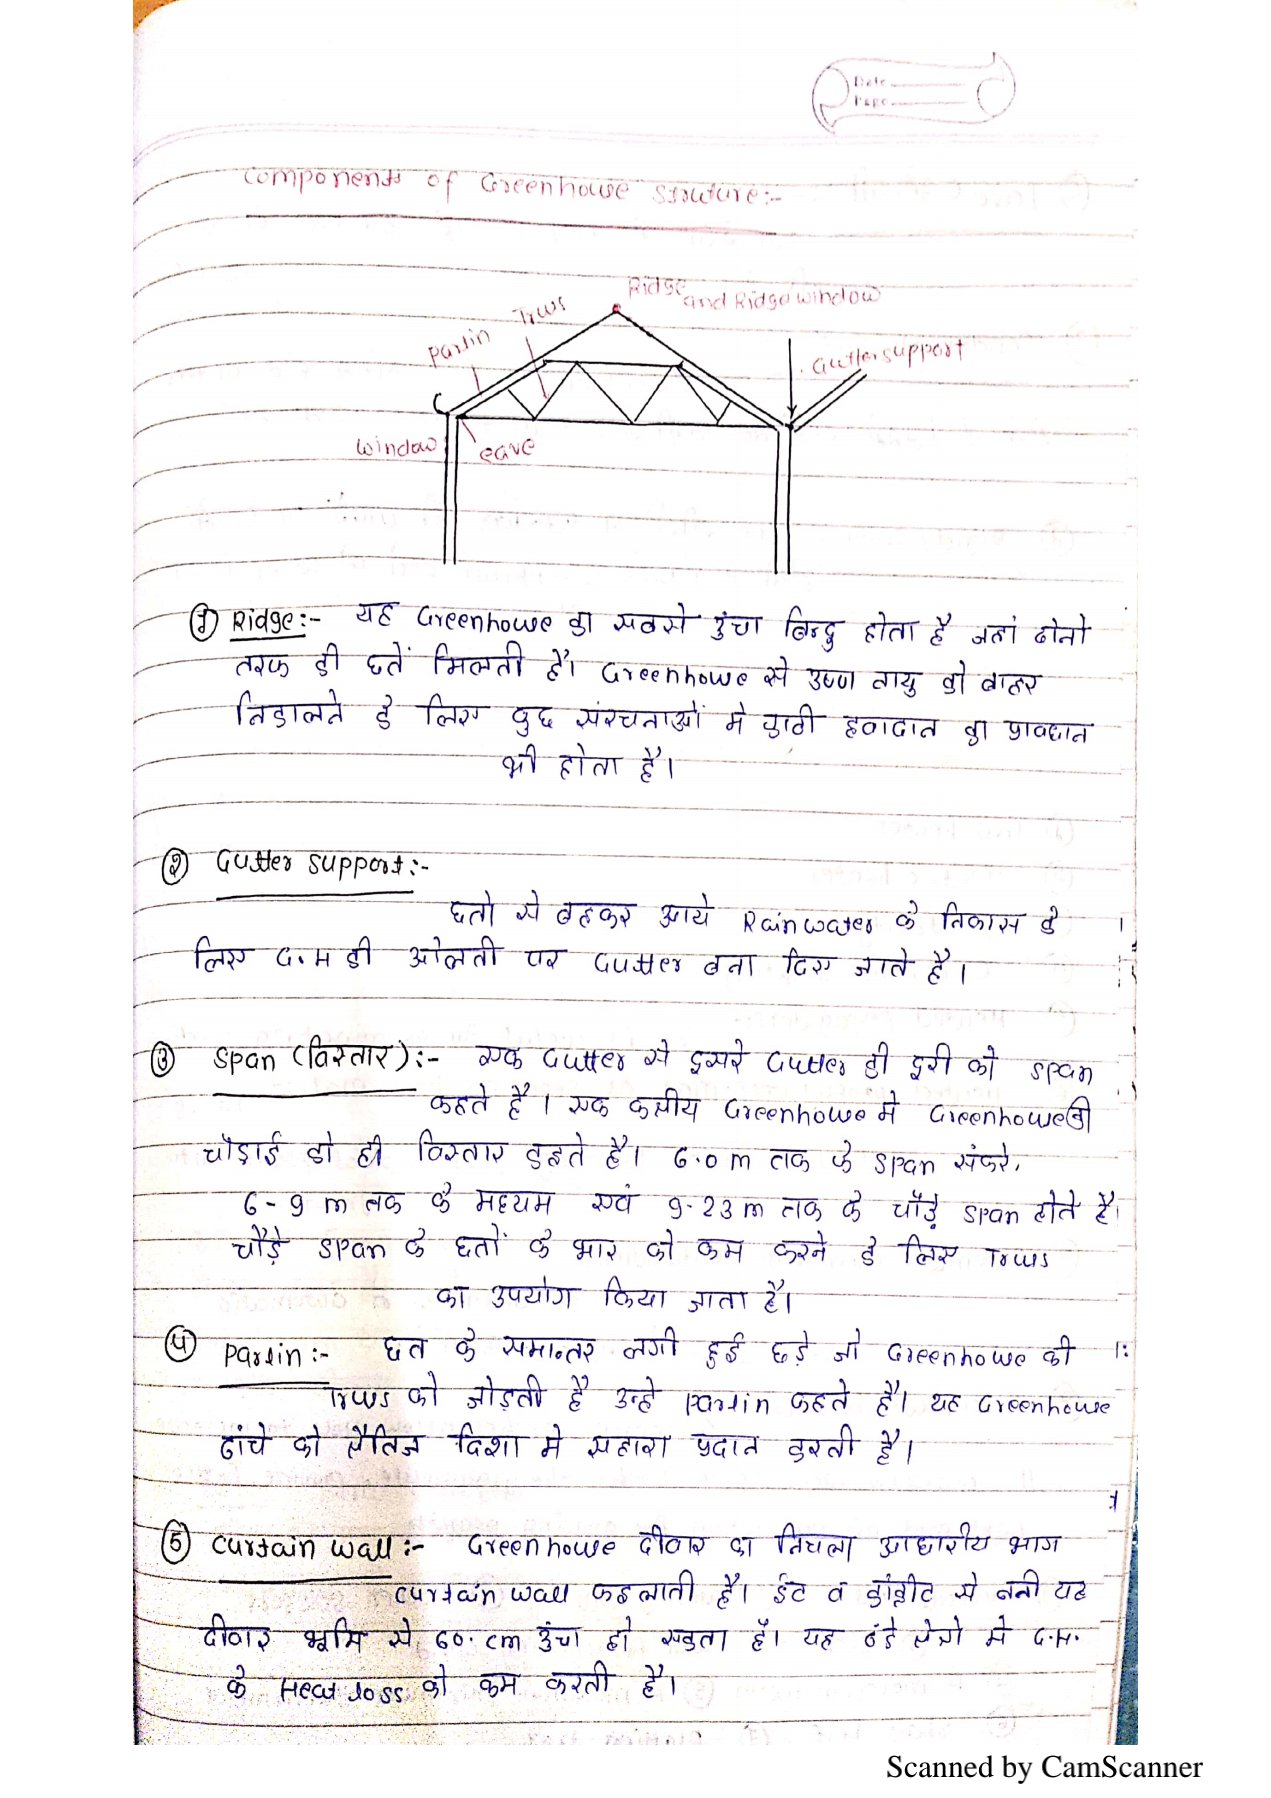 Date
Page
Components of Greenhouse Struture:-
Ridge
and Ridge window
Truss
Parlin
Gutter support
window
eave
① Ridge:- यह Greenhouse का सबसे उंचा बिन्दु होता है जहां दोनो
तरफ की छतें मिलती है। Greenhouse से उष्ण वायु को बाहर
निकालने के लिए कुछ संरचनाओं मे काठी हवादान का प्रावधान
भी होता है।
② Gutter support:-
छतो से बहकर आये Rain water के निकास के
लिए G.H की ओलती पर Gutter बना दिए जाते है।
③ Span (विस्तार):- एक Gutter से दूसरे Gutter की दूरी को span
कहते है। एक कक्षीय Greenhouse मे Greenhouse की
चौड़ाई को ही विस्तार कहते है। 6.0 m तक के span संकरे,
6-9 m तक के मध्यम एवं 9-23 m तक के चौड़े span होते है।
चौड़े span के छतों के भार को कम करने के लिए Truss
का उपयोग किया जाता है।
④ Parlin:- छत के समान्तर लगी हुई छड़े जो Greenhouse की
Truss को जोड़ती है उन्हे parlin कहते है। यह Greenhouse
ढांचे को क्षैतिज दिशा मे सहारा प्रदान करती है।
⑤ Curtain wall:- Greenhouse दीवार का निचला आधारीय भाग
curtain wall कहलाती है। ईंट व कांक्रीट से बनी यह
दीवार भूमि से 60. cm उंचा हो सकता है। यह ठंडे क्षेत्रो मे G.H.
के Heat loss को कम करती है।
Scanned by CamScanner